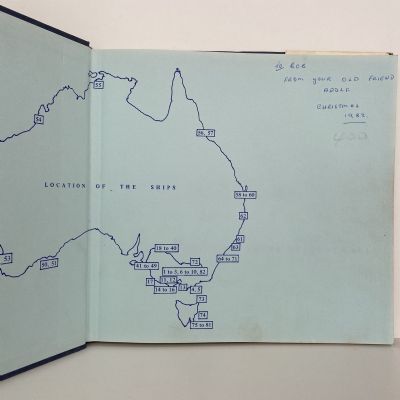 to BOB
FROM YOUR OLD FRIEND
ADOLF
CHRISTMAS
1982.
400
55
54
56, 57
LOCATION OF THE SHIPS
58 to 60
62
61
63
64 to 71
53
50, 51
18 to 40
72
41 to 49
1 to 3, 6 to 10, 82
17
11, 12
13
14 to 16
4, 5
73
74
75 to 81